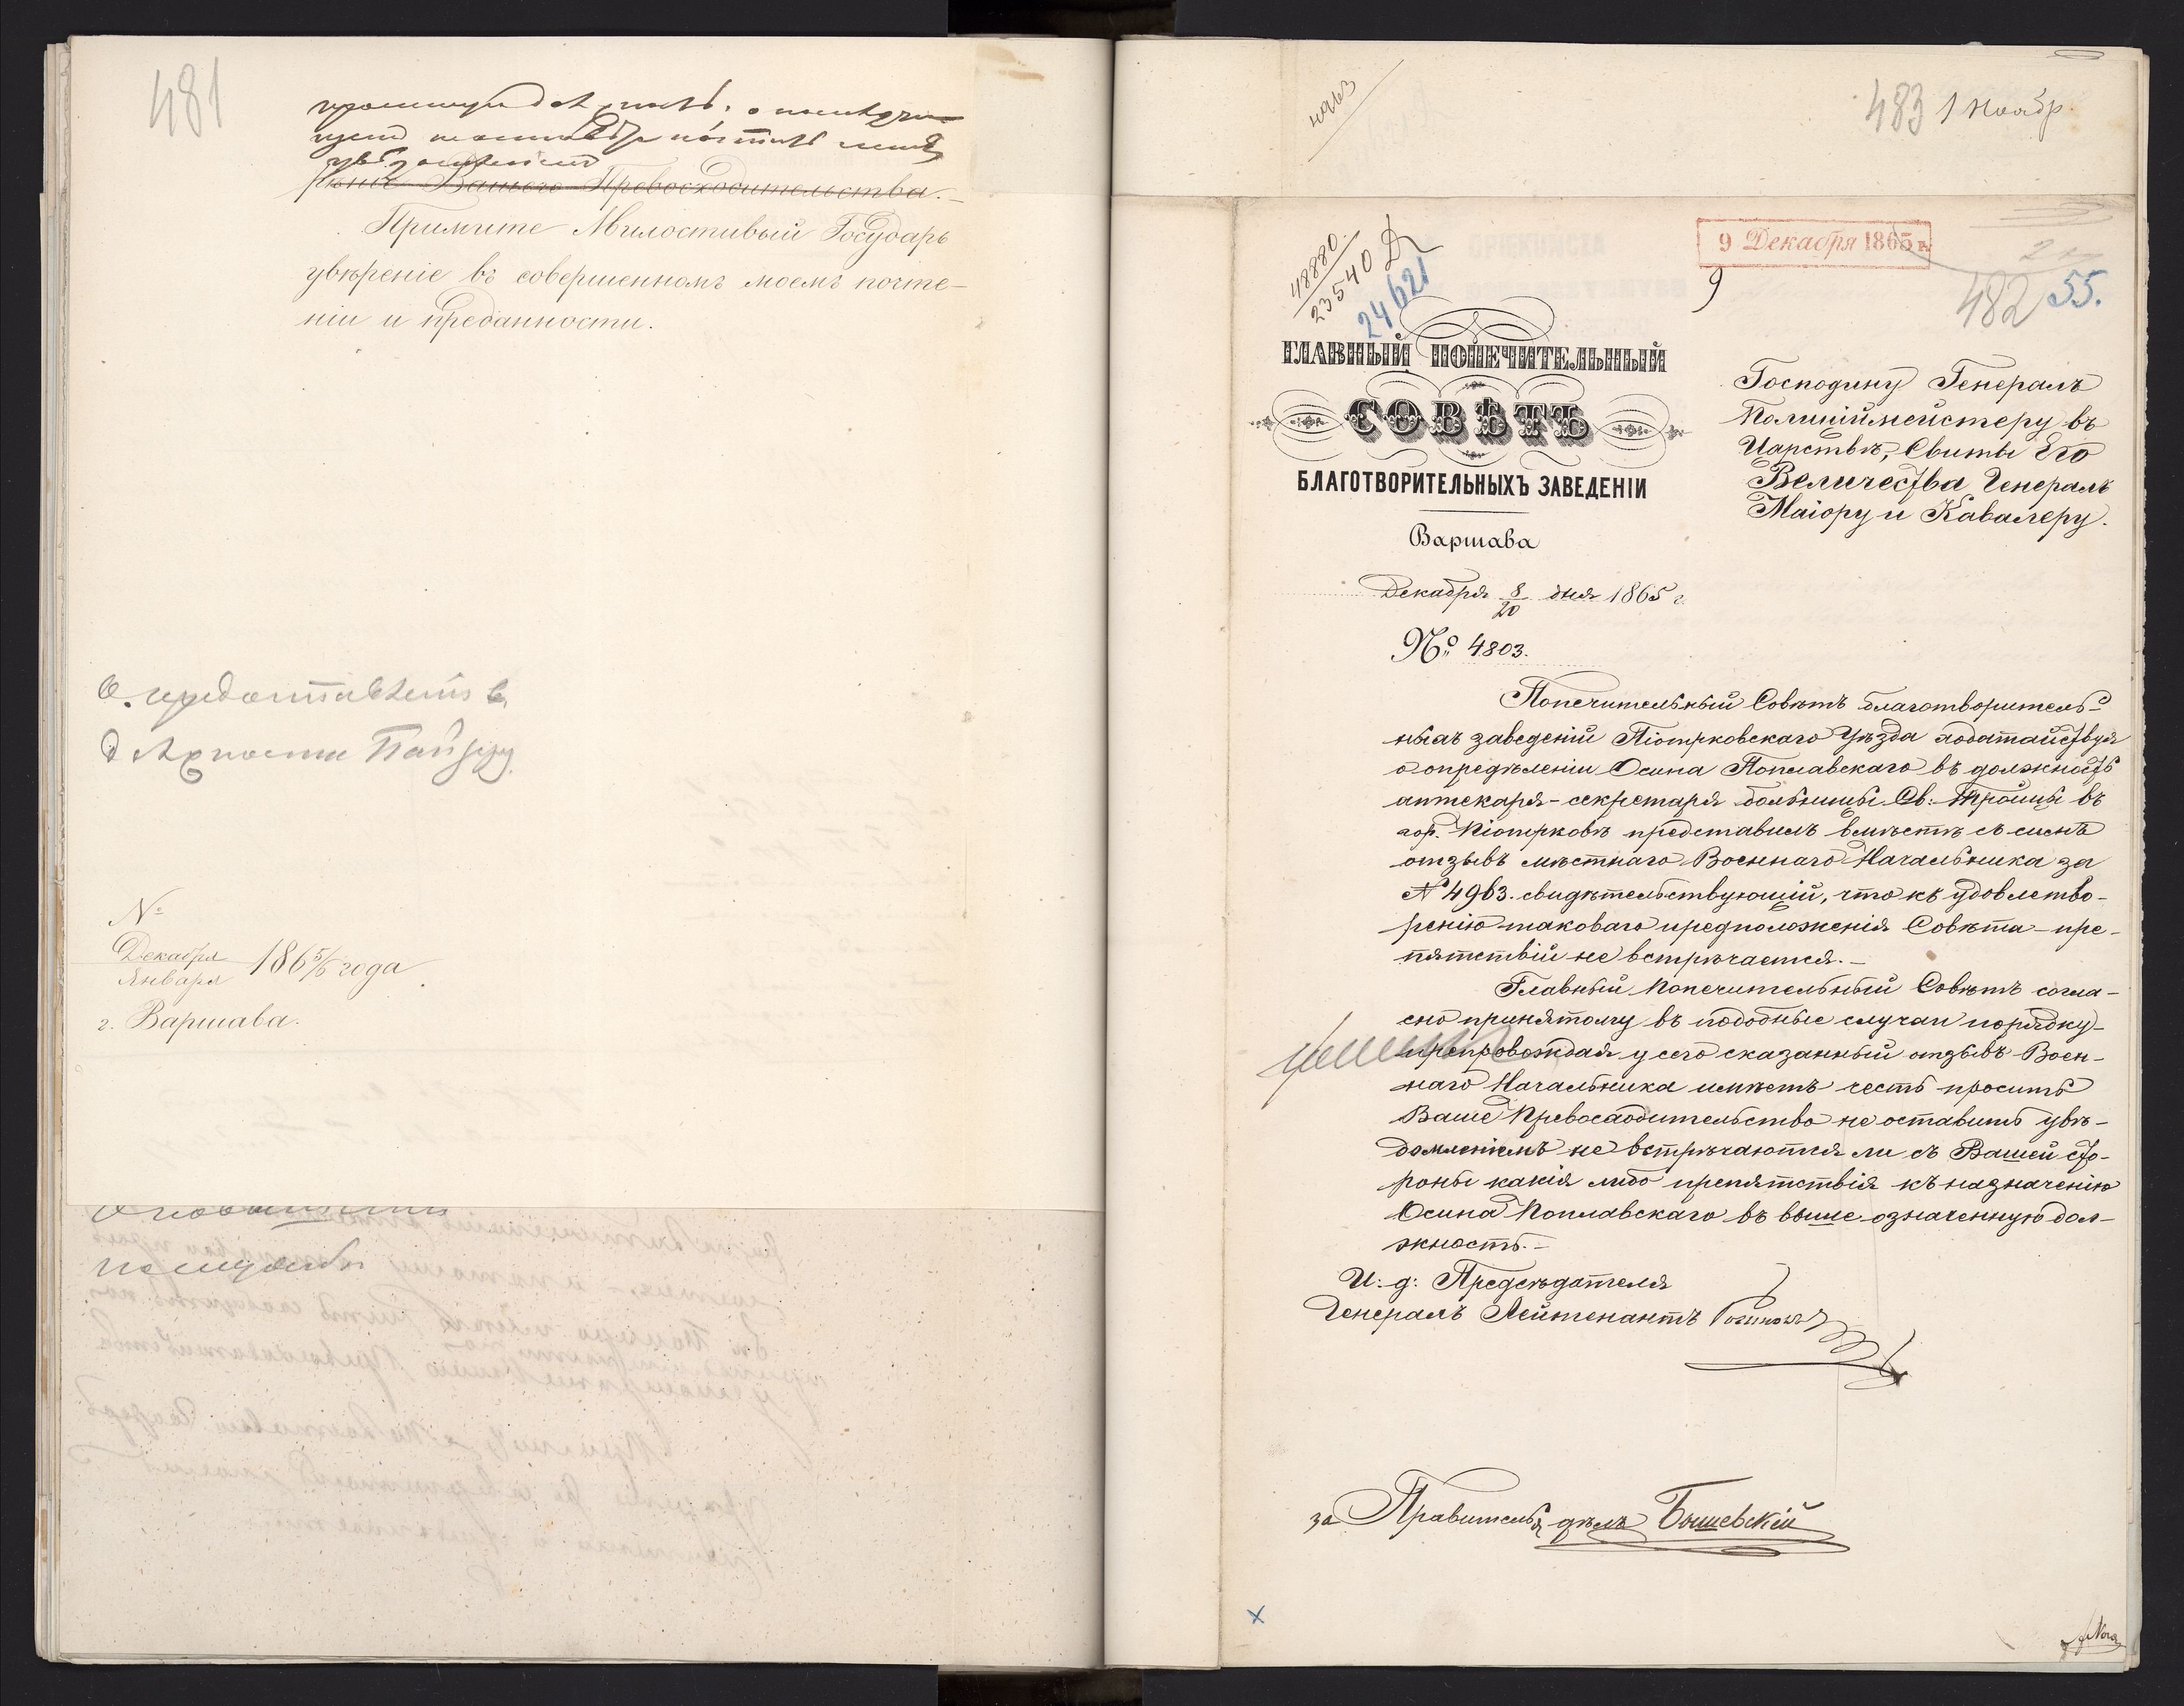 481
Вашего Превосходительства.
Примите Милостивый Государь
увѣреніе въ совершенномъ моемъ почте-
ніи и преданности.
№
Декабря
Января 1865/6 года
г. Варшава.
4963
483 1 Ноябр.
48880
23540
24621
9 Декабря 1865 г.
9
482 55.
ГЛАВНЫЙ ПОПЕЧИТЕЛЬНЫЙ
СОВѢТЪ
БЛАГОТВОРИТЕЛЬНЫХЪ ЗАВЕДЕНІЙ
Варшава
Декабря 8/20 дня 1865 г.
№ 4803.
Господину Генералъ
Полиціймейстеру въ
Царствѣ, Свиты Его
Величества Генералъ
Маіору и Кавалеру.
Попечительный Совѣтъ благотворитель-
ныхъ заведеній Піотрковскаго Уѣзда ходатайствуя
о опредѣленіи Осипа Поплавскаго въ должность
аптекаря-секретаря больницы Св: Троицы въ
гор. Піотрковѣ представилъ вмѣстѣ съ симъ
отзывъ мѣстнаго Военнаго Начальника за
№ 4963. свидѣтельствующій, что къ удовлетво-
ренію таковаго предположенія Совѣта - пре-
пятствій не встрѣчается. -
Главный Попечительный Совѣтъ согла-
сно принятому въ подобные случаи порядку
препровождая у сего сказанный отзывъ Воен-
наго Начальника имѣетъ честь просить
Ваше Превосходительство не оставить увѣ-
домленіемъ не встрѣчаются ли съ Вашей сто-
роны какія либо препятствія къ назначенію
Осипа Поплавскаго въ выше означенную дол-
жность. -
И: д: Предсѣдателя
Генералъ Лейтенантъ
за Правителя дѣлъ Бышевскій